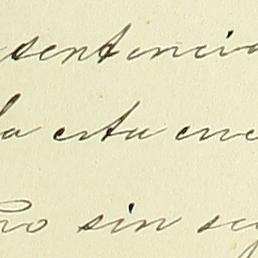 sentencia
la esta cue
ro sin seg